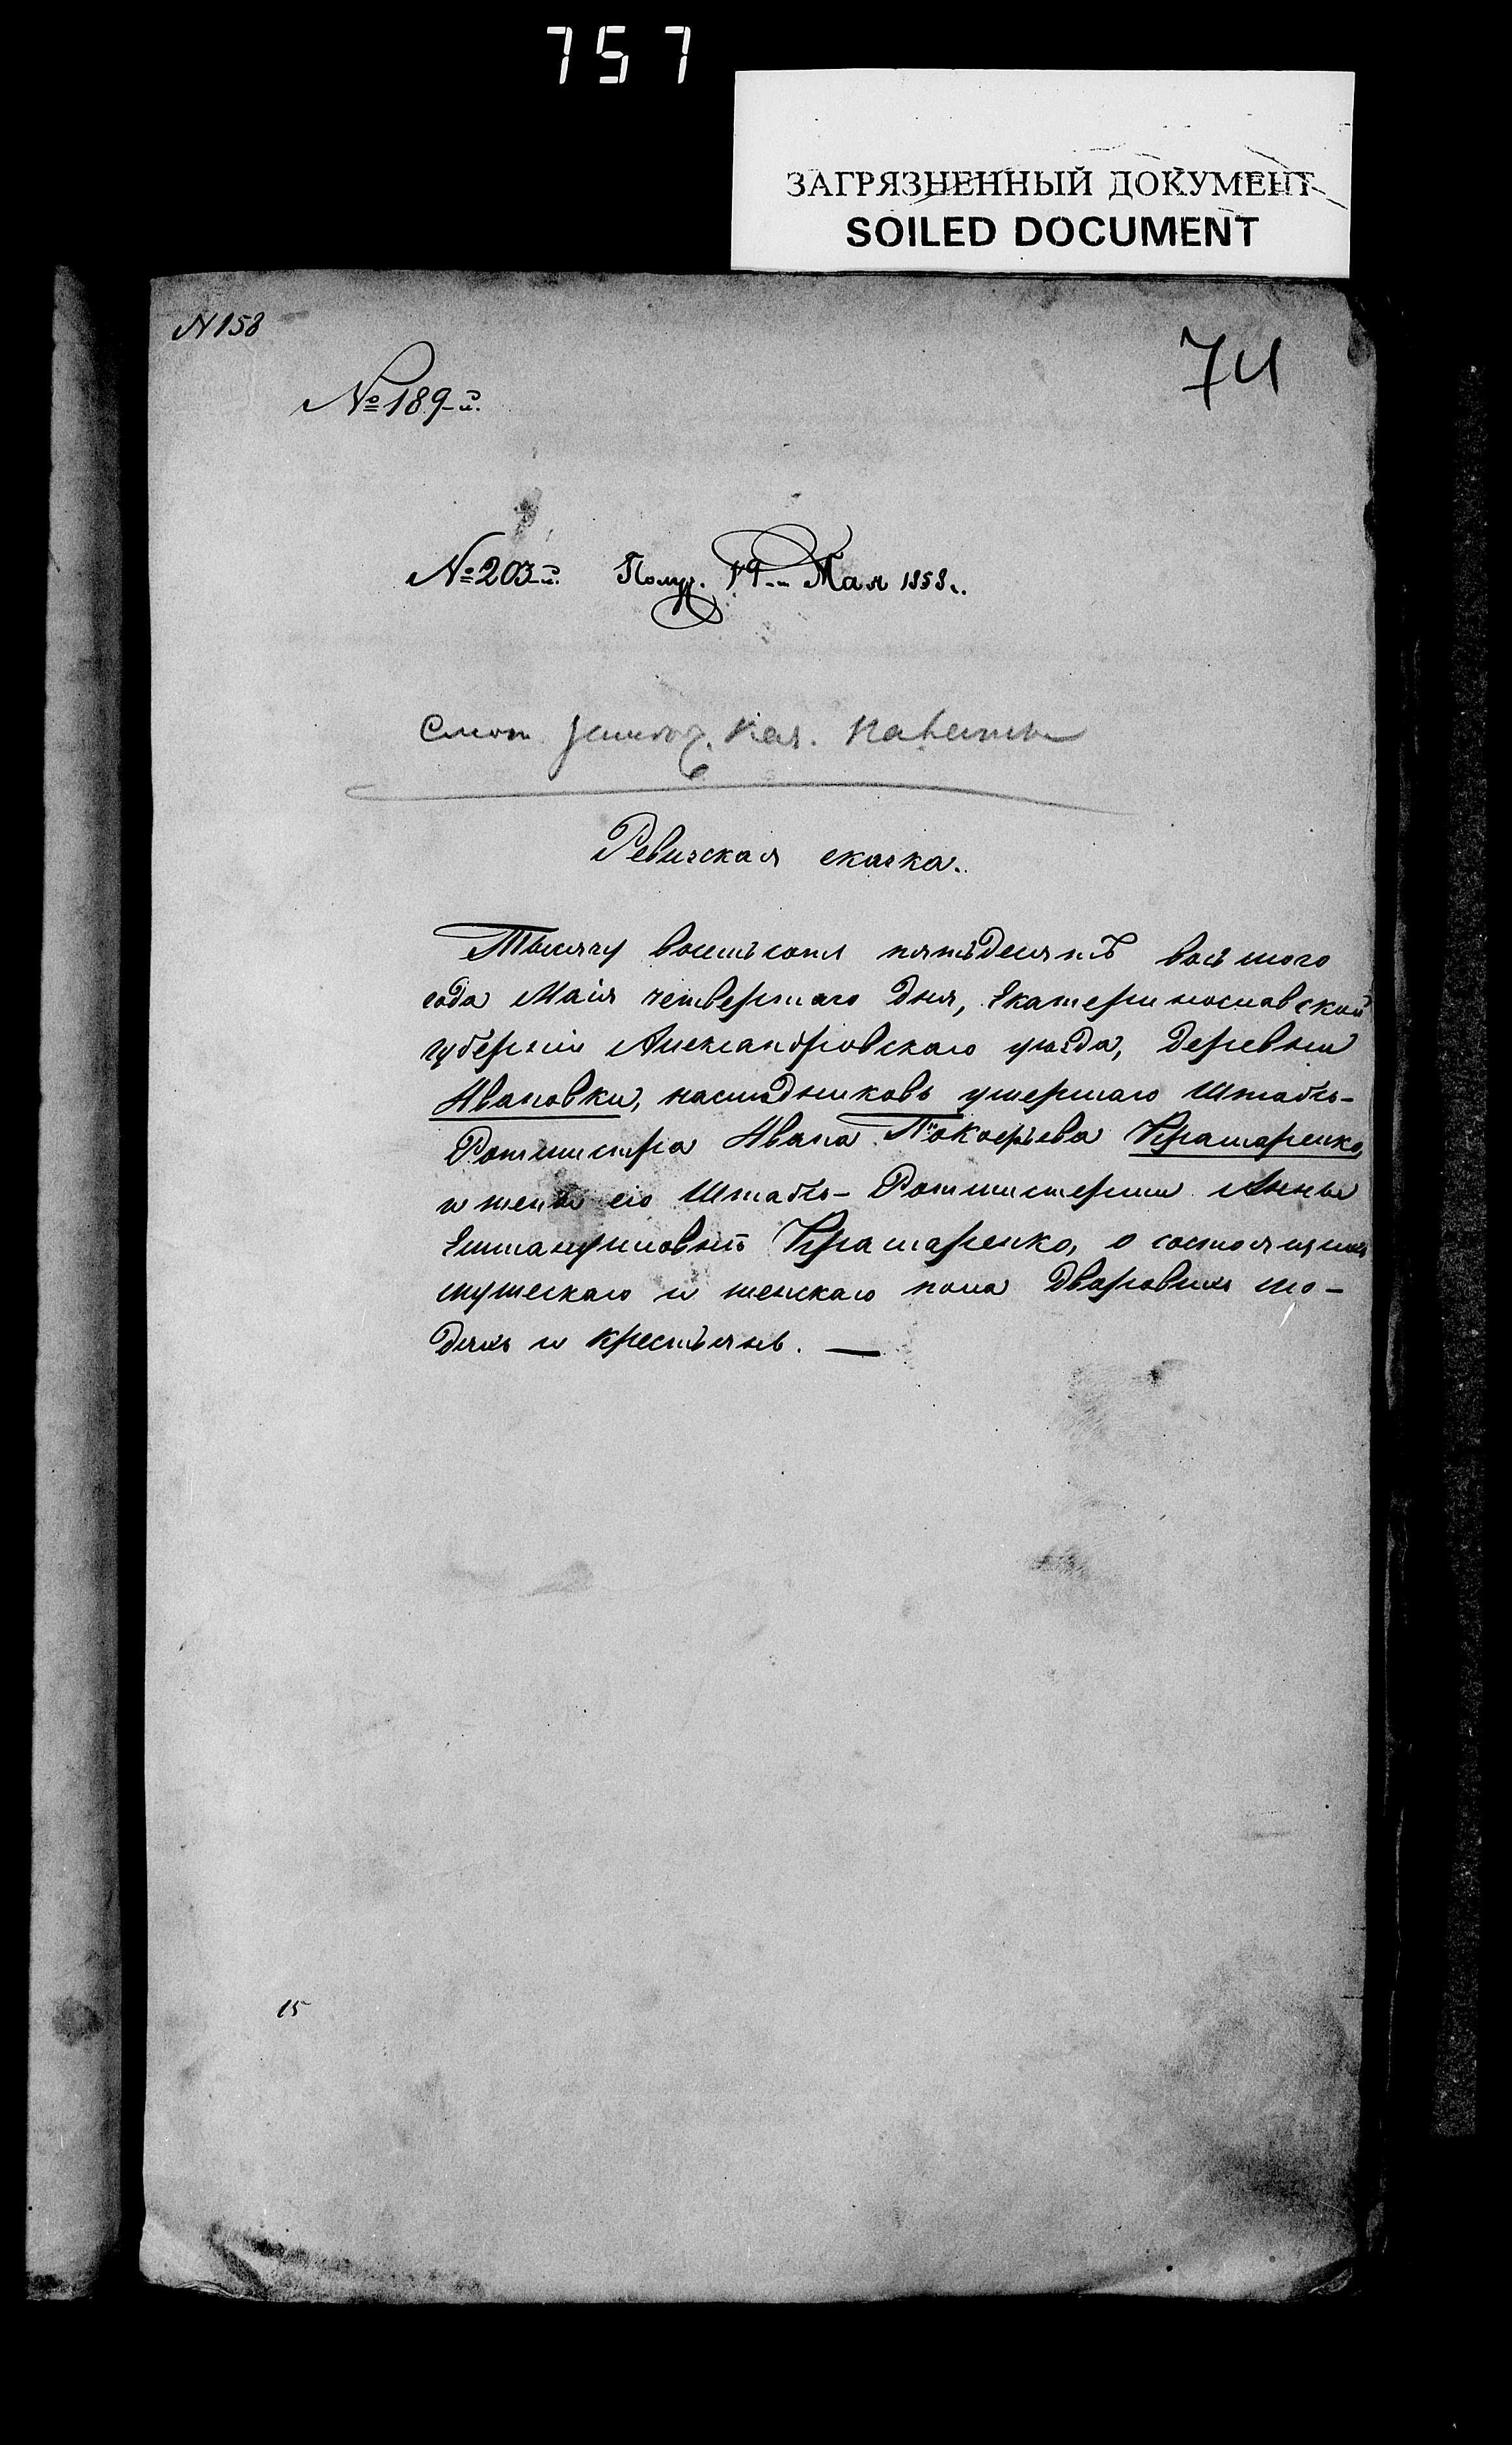 757
ЗАГРЯЗНЕННЫЙ ДОКУМЕНТ
SOILED DOCUMENT
N 158
74
№ 189-й.
№ 203-й. Получ. 19-го Мая 1858 г.
Ревизская сказка.
Тысячу восемьсотъ пятьдесятъ восьмого
года Маія четвертаго дня, Екатеринославской
губерніи Александровскаго уѣзда, деревни
Ивановки, наслѣдниковъ умершаго Штабсъ-
Ротмистра Ивана Прокофьева Крамаренко,
и жены его Штабсъ-Ротмистерши Анны
Еммануиловны Крамаренко, о состоящихъ
мужескаго и женскаго пола дворовыхъ лю-
дяхъ и крестьянъ. —
15